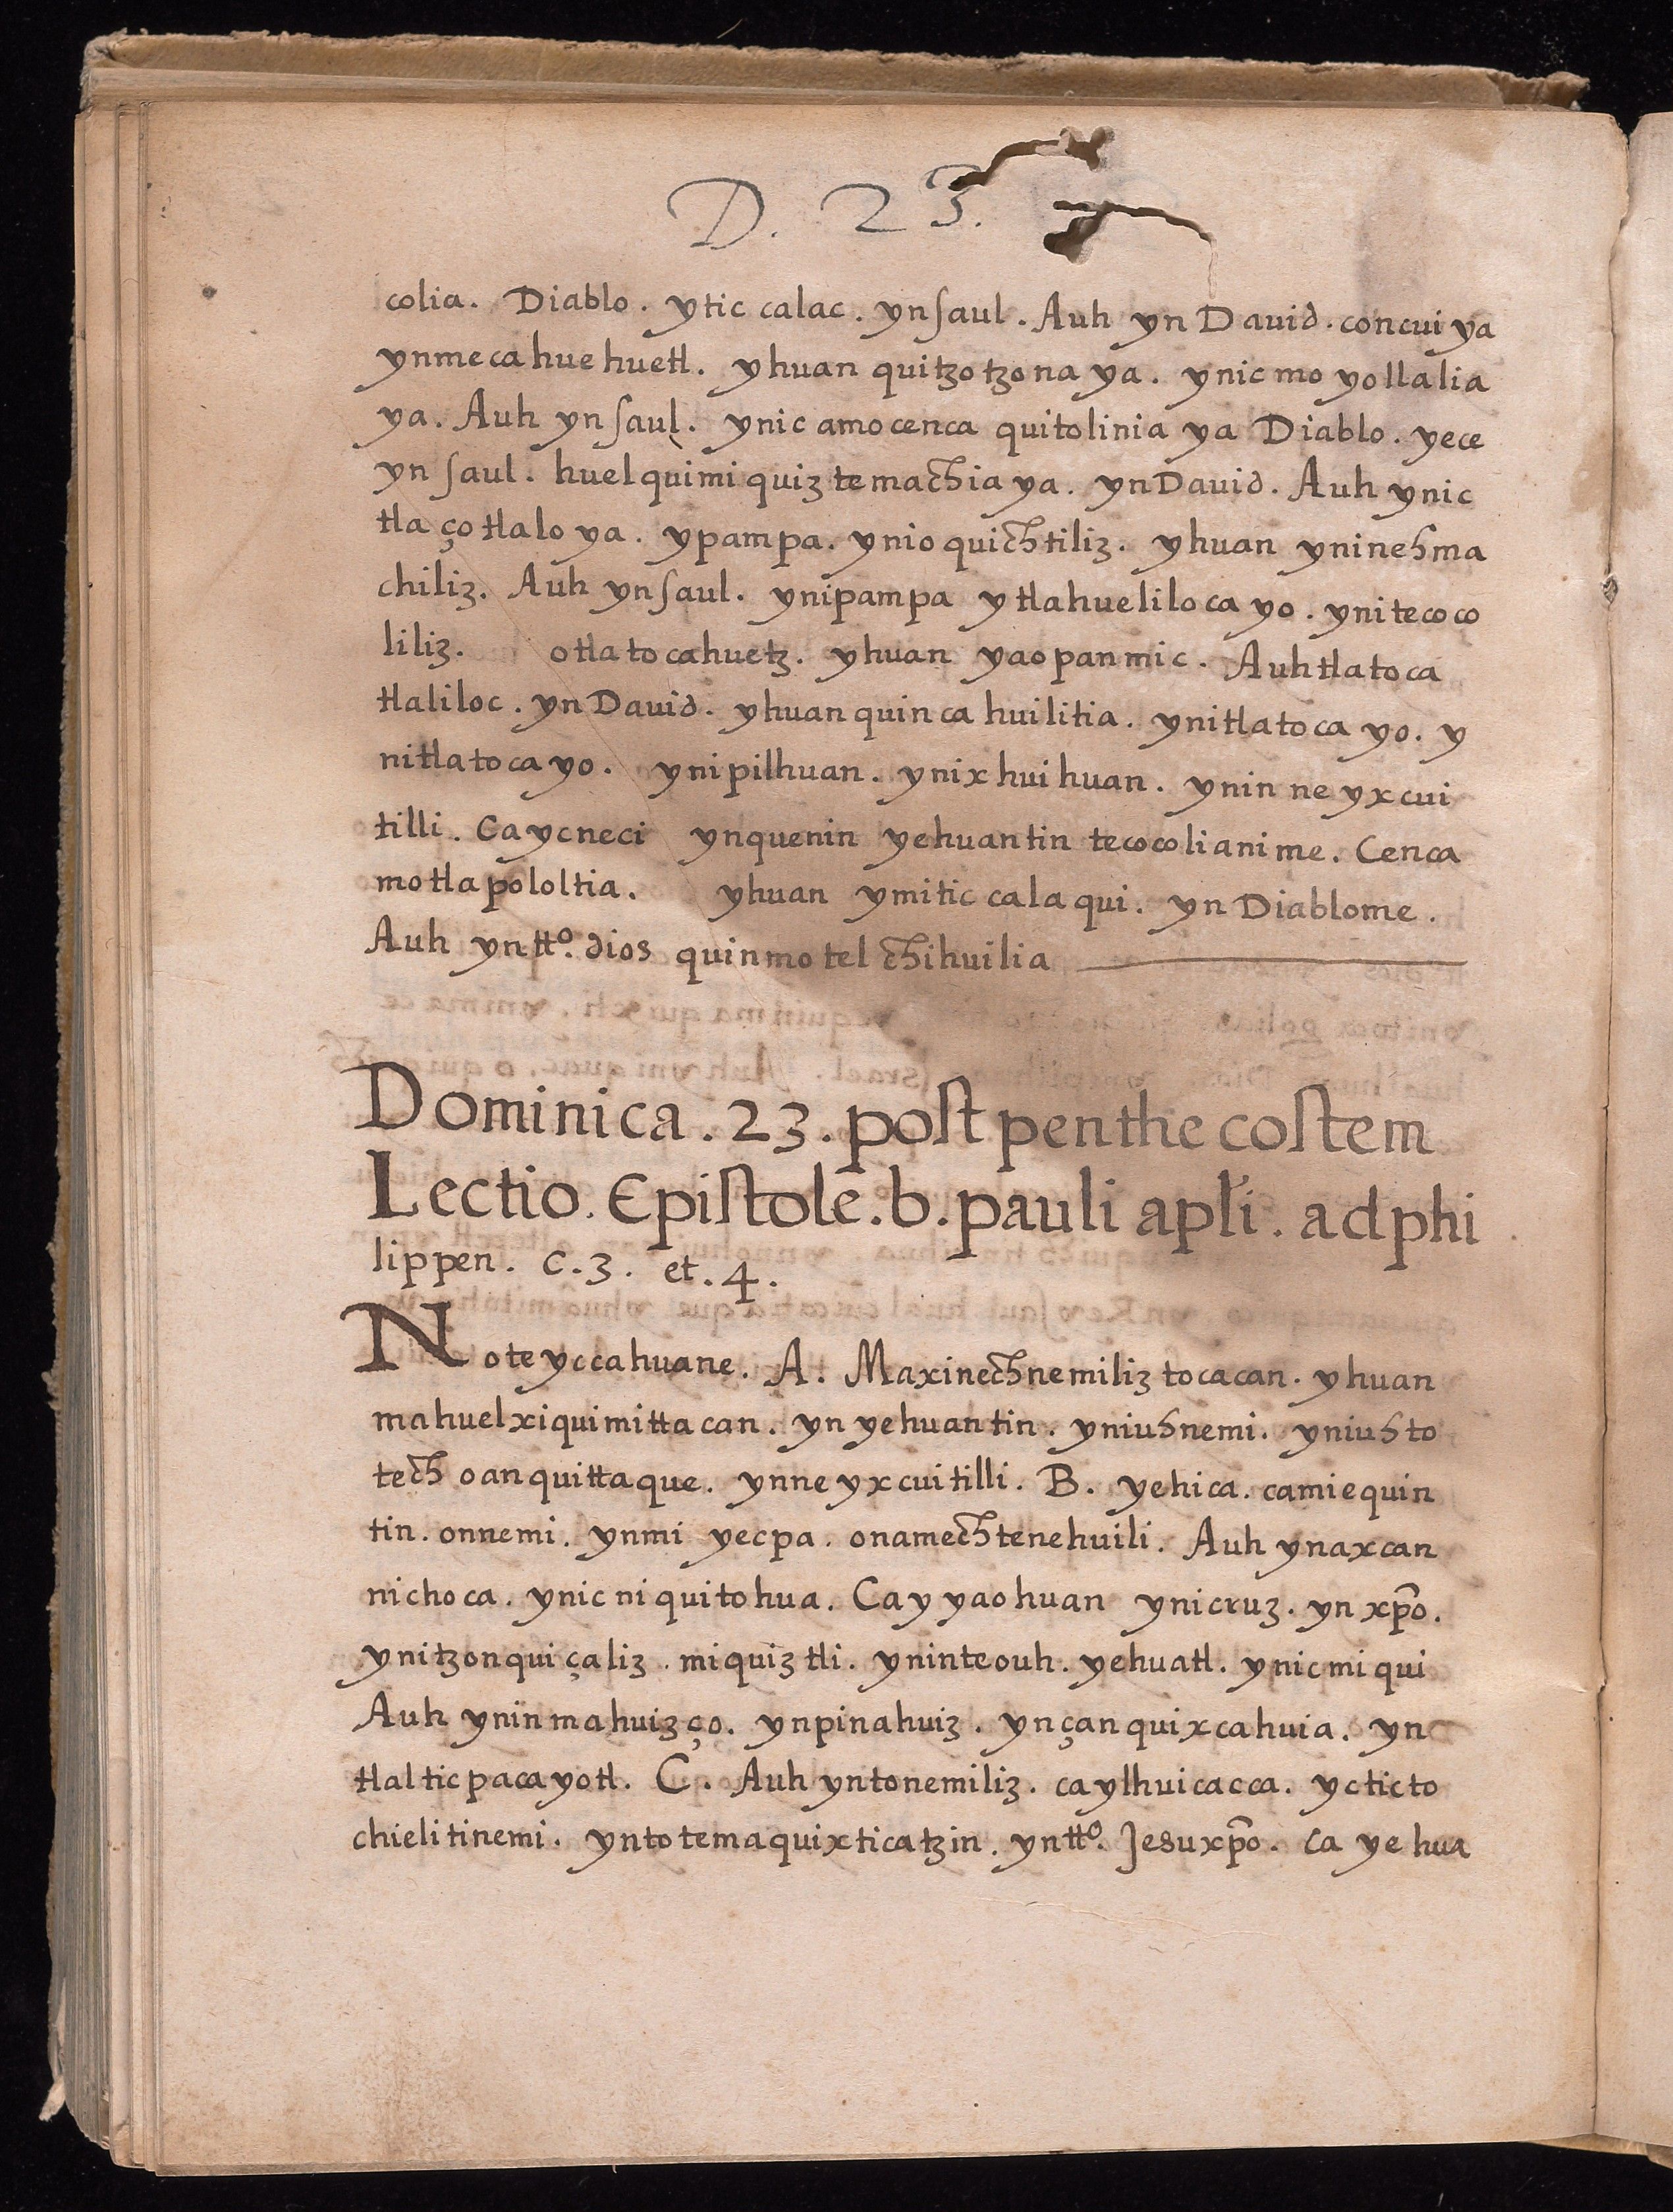 D. 23.
colia. Diablo. ytic calac. ynſaul. Auh yn Dauid. concui ya
ynmecahuehuetl. yhuan quitzotzona ya. ynic mo yollalia
ya. Auh ynſaul. ynic amo cenca quitolinia ya Diablo. yece
yn ſaul. huel quimiquiztemachia ya. yn Dauid. Auh ynic
tlaçotlalo ya. ypampa. ynioquichtiliz. yhuan yninehma
chiliz. Auh ynſaul. ynipampa ytlahuelilocayo. ynitecoco
liliz. otlatocahuetz. yhuan yaopanmic. Auh tlatoca
tlaliloc. yn Dauid. yhuan quincahuilitia. ynitlatocayo. y
nitlatocayo. ynipilhuan. ynixhuihuan. ynin neyxcui
tilli. Ca ycneci ynquenin yehuantin tecocolianime. Cenca
motlapololtia. yhuan ymitic calaqui. yn Diablome.
Auh yntt⁰. dios quinmotelchihuilia
Dominica. 23. poſt penthecoſtem
Lectio. Epiſtole. b. pauli apľi. ad phi
lippen. c. 3. et. 4.
Noteyccahuane. A. Maxinechnemiliztocacan. yhuan
mahuelxiquimittacan. yn yehuantin. yniuhnemi. yniuhto
tech oanquittaque. ynneyxcuitilli. B. yehica. camiequin
tin. onnemi. ynmi yecpa. onamechtenehuili. Auh ynaxcan
nichoca. ynic niquitohua. Ca yyaohuan ynicruz. yn xp̄o.
ynitzonquiçaliz. miquiztli. yninteouh. yehuatl. ynicmiqui
Auh yninmahuizço. ynpinahuiz. ynçanquixcahuia. yn
tlalticpacayotl. C. Auh yntonemiliz. ca ylhuicacca. yc ticto
chielitinemi. yntotemaquixticatzin. yntt⁰. Jesu xp̄o. ca yehua